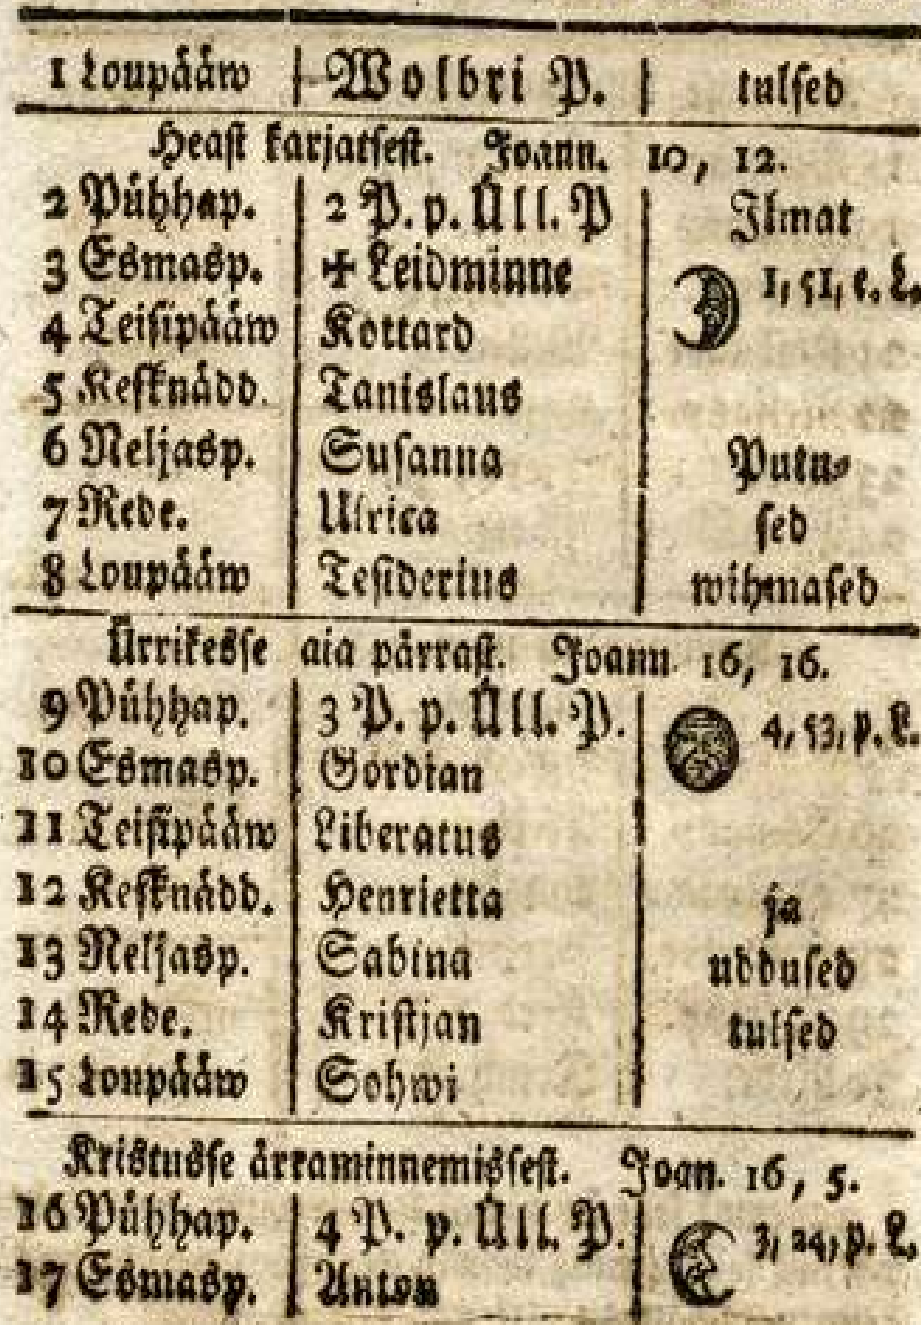 1 Loupääw | Wolbri P. | tulsed
Heast karjatsest. Joann. 10, 12.
2 Pühhap. | 2 P. p. Üll. P | Ilmat
3 Esmasp. | ✠ Leidminne | 1, 51, e. L.
4 Teisipääw | Kottard
5 Kesknädd. | Tanislaus
6 Neljasp. | Susanna | Putu-
7 Rede. | Ulrica | sed
8 Loupääw | Tesiderius | wihmased
Ürrikesse aia pärrast. Joann. 16, 16.
9 Pühhap. | 3 P. p. Üll. P. | 4, 53, p. L.
10 Esmasp. | Gordian
11 Teisipääw | Liberatus
12 Kesknädd. | Henrietta | ja
13 Neljasp. | Sabina | uddused
14 Rede. | Kristjan | tulsed
15 Loupääw | Sohwi
Kristusse ärraminnemissest. Joan. 16, 5.
16 Pühhap. | 4 P. p. Üll. P. | 3, 24, p. L.
17 Esmasp. | Anton